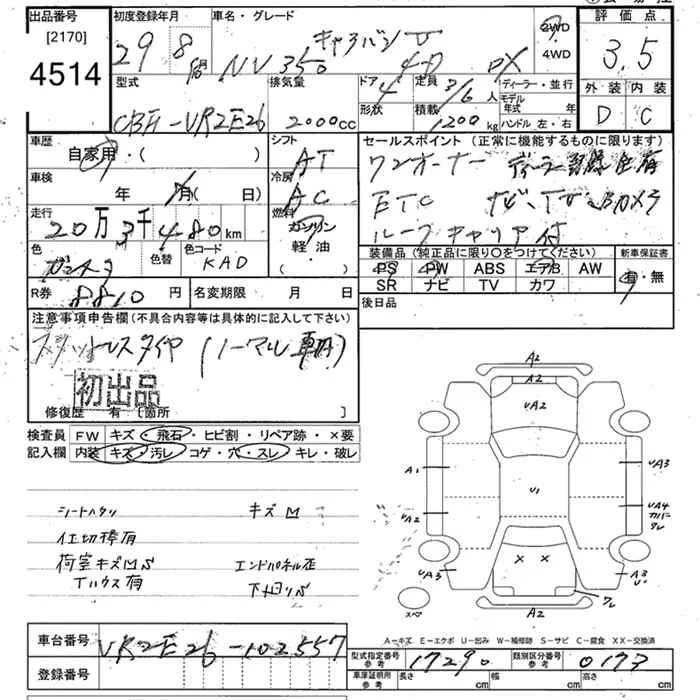 出品番号 初度登録年月 車名・グレード 評価点
[2170] 29 8 キャラバン V 2WD
4514 NV350 4D DX 4WD 3.5
型式 排気量 ドア 4 定員 3/6 人 ディーラー・並行 外装 内装
CBF-VR2E26 2000cc 形状 積載 1200 kg モデル年式 年 D C
ハンドル 左・右
車歴 シフト セールスポイント(正常に機能するものに限ります)
自家用・( ) AT ワンオーナー
車検 年 月( 日) 冷房 AC ETC ナビ、TV、Bカメラ
走行 20万3千480km 燃料 ルーフキャリア付
色 色替 色コード ガソリン 装備品(純正品に限り〇をつけてください) 新車保証書
KAD 軽・油 PS PW ABS エアB AW 有・無
・( ) SR ナビ TV カワ
R券 8810 円 名変期限 月 日 後日品
注意事項申告欄(不具合内容等は具体的に記入して下さい)
スタットレスタイヤ(ノーマル車内)
初出品
修復歴 有 [箇所 ]
検査員 FW キズ・飛石・ヒビ割・リペア跡・×要
記入欄 内装 キズ・汚レ・コゲ・穴・スレ・キレ・破レ
シートヘタリ キズM
仕切棒有
荷室キズM凹 エンドパネル歪
Tハウス有
A2
A2
UA2
A1 UA3
U1
UA2 UA4
カバー
ワレ
× ×
UA3 A3
U
ワレ
スペア A2
A-キズ E-エクボ U-凹み W-補修跡 S-サビ C-腐食 XX-交換済
車台番号 VR2E26-102557 型式指定番号 参考 17290 類別区分番号 参考 0173
登録番号 車庫証明用 参考 長さ cm 幅 cm 高さ cm